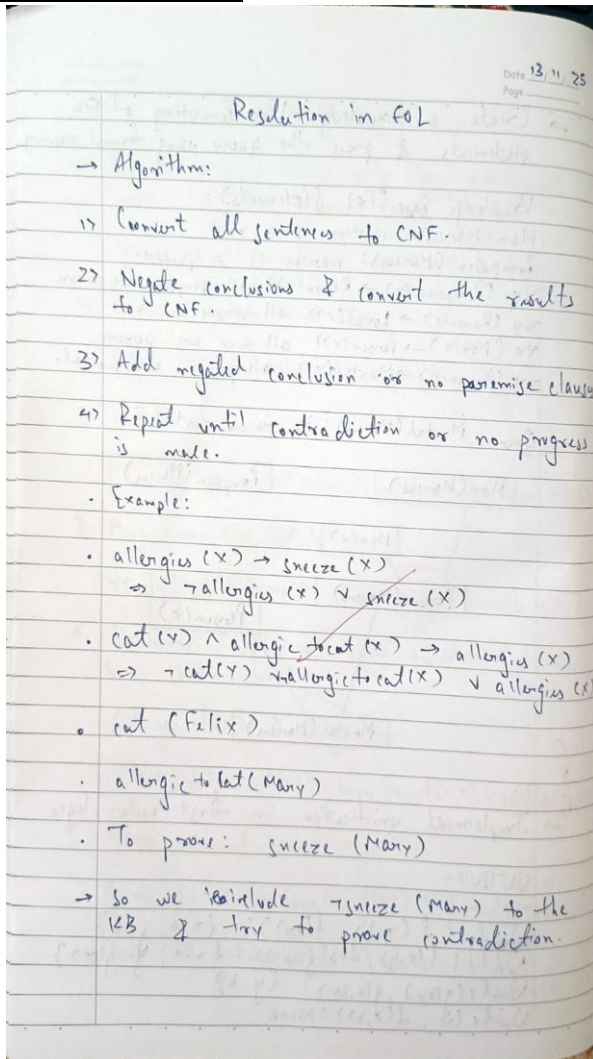 Date 13/11/25
Page
Resolution in FOL
→ Algorithm:
1) Convert all sentences to CNF.
2) Negate conclusions & convert the results
to CNF.
3) Add negated conclusion or no paremise clausy
4) Repeat until contradiction or no progress
is made.
• Example:
• allergies (x) → sneeze (x)
⇒ ¬allergies (x) ∨ sneeze (x)
• cat (Y) ∧ allergic to cat (x) → allergies (x)
⇒ ¬cat(Y) ∨¬allergic to cat(x) ∨ allergies (x)
• cat (Felix)
• allergic to cat (Mary)
• To prove: sneeze (Mary)
→ So we include ¬sneeze (Mary) to the
KB & try to prove contradiction.